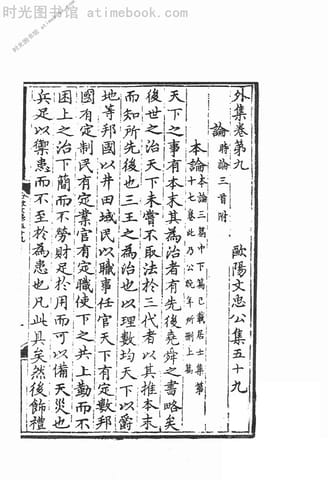 时光图书馆 - atimebook.com
时光图书馆 www.atimebook.com
外集卷第九　歐陽文忠公集五十九
論時論三首附
本論本論三篇中下篇已載居士集第
十七卷此乃公晚年所刪上篇
天下之事有本末其為治者有先後堯舜之書略矣
後世之治天下未嘗不取法於三代者以其推本末
而知所先後也三王之為治也以理數均天下以爵
地等邦國以井田域民以職事任官天下有定數邦
國有定制民有定業官有定職使下之共上勤而不
困上之治下簡而不勞財足於用而可以備天災也
兵足以禦患而不至於為患也凡此具矣然後飾禮